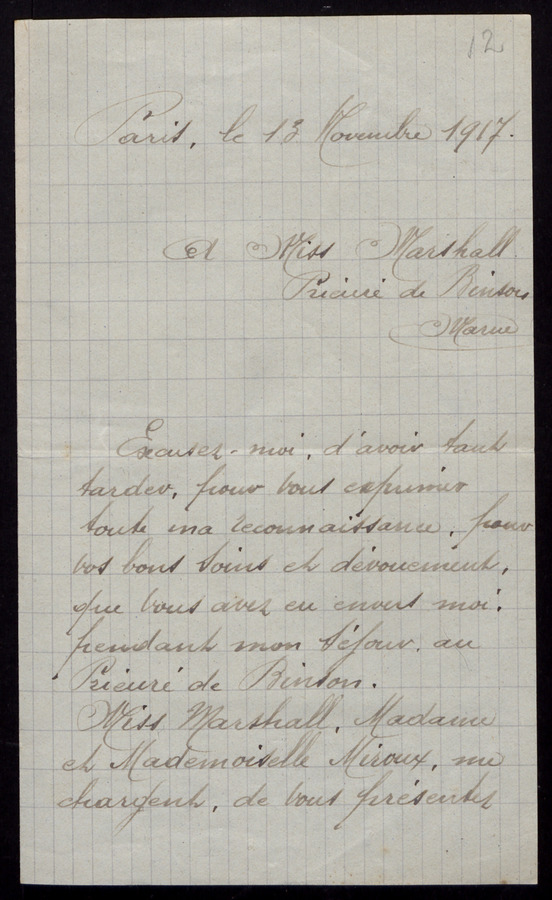 12
Paris, le 13 Novembre 1917.
A Miss Marshall
Prieuré de Binson
Marne
Excusez-moi, d'avoir tant
tarder, pour vous exprimer
toute ma reconnaissance, pour
vos bons soins et dévouement,
que vous avez eu envers moi.
pendant mon séjour, au
Prieuré de Binson.
Miss Marshall, Madame
et Mademoiselle Miroux, me
chargent, de vous présentez